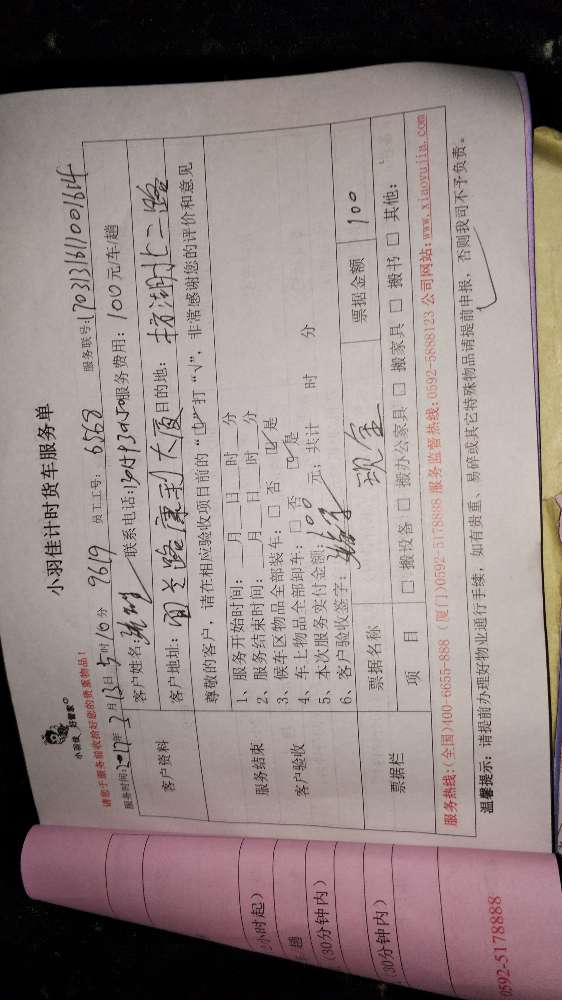 小羽佳计时货车服务单
小羽佳 好管家
请您于服务前收拾好您的贵重物品!
服务时间:2017年3月13日5时16分 9619 员工工号: 6568 服务联号:1703131611001614
客户资料
客户姓名: 联系电话: 服务费用: 100元/车/趟
客户地址: 路康利大厦 目的地: 枋湖北二路
尊敬的客户, 请在相应验收项目前的“□”打“√”, 非常感谢您的评价和意见
服务结束
客户验收
1、服务开始时间: 月 日 时 分
2、服务结束时间: 月 日 时 分
3、候车区物品全部装车: □ 否 ☑ 是
4、车上物品全部卸车: □ 否 ☑ 是
5、本次服务实付金额: 100 元; 共计 时 分
6、客户验收签字:
票据栏
票据名称 现金 票据金额 100
项 目 □ 搬设备 □ 搬办公家具 □ 搬家具 □ 搬书 □ 其他:
服务热线:(全国)400-6655-888 (厦门)0592-5178888 服务监督热线:0592-5888123 公司网站:www.xiaoyujia.com
温馨提示: 请提前办理好物业通行手续, 如有贵重、易碎或其它特殊物品请提前申报, 否则我司不予负责。
小时起)
趟
(30分钟内)
(30分钟内)
0592-5178888